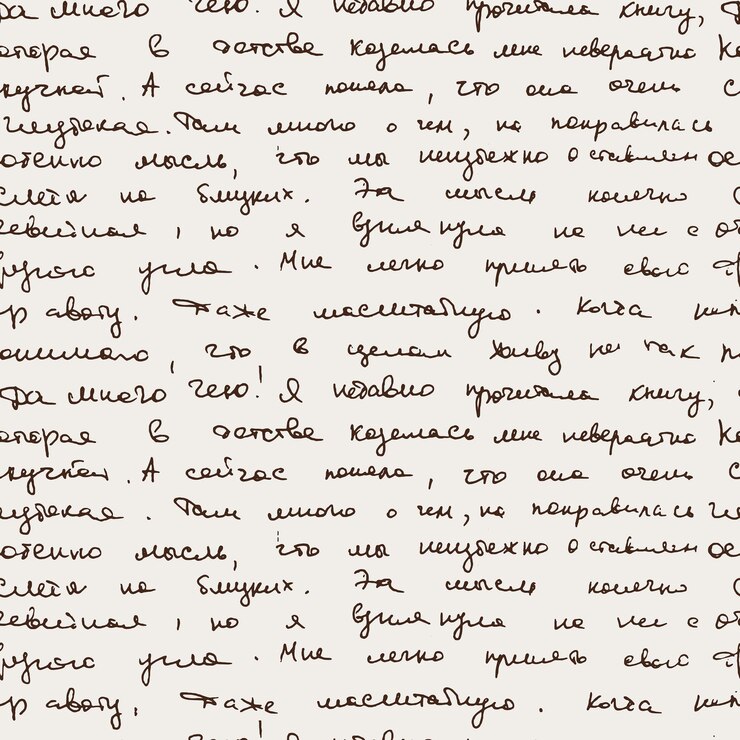 Да много чего! Я недавно прочитала книгу,
оторая в детстве казалась мне невероятно
кучной. А сейчас поняла, что она очень
глубокая. Там много о чем, но понравилась
мысль, что мы неизбежно оставляем
на близких. Эта мысль конечно
но я взглянула на нее с
другого угла. Мне легко принять свою
Даже масштабную. Когда
что в целом живу не так
Да много чего! Я недавно прочитала книгу,
оторая в детстве казалась мне невероятно
кучной. А сейчас поняла, что она очень
глубокая. Там много о чем, но понравилась
мысль, что мы неизбежно оставляем
на близких. Эта мысль конечно
но я взглянула на нее с
другого угла. Мне легко принять свою
Даже масштабную. Когда